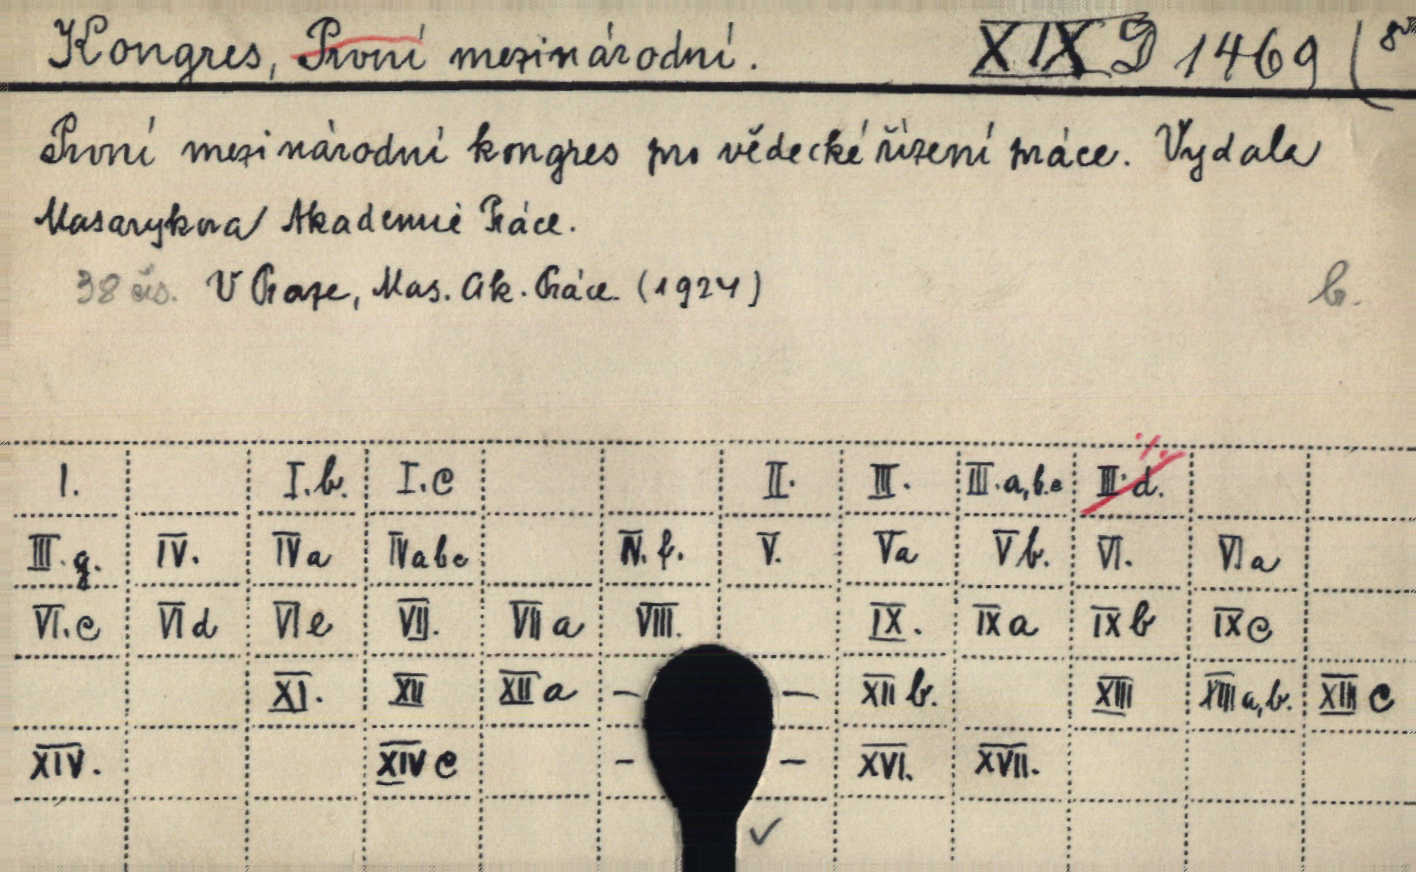 Kongres, První mezinárodní. XIX D 1469 (8
První mezinárodní kongres pro vědecké řízení práce. Vydala
Masarykova Akademie Práce.
38 čís. V Praze, Mas. Ak. Práce. (1924) b.
I. I.b. I.c II. III. III.a,b.c III.d.
III.g. IV. IVa IVabc IV.f. V. Va Vb. VI. VIa
VI.c VId VIe VII. VIIa VIII. IX. IXa IXb IXc
XI. XII XIIa – – XIIb. XIII XIIIa,b. XIIIc
XIV. XIVc – – XVI. XVII.